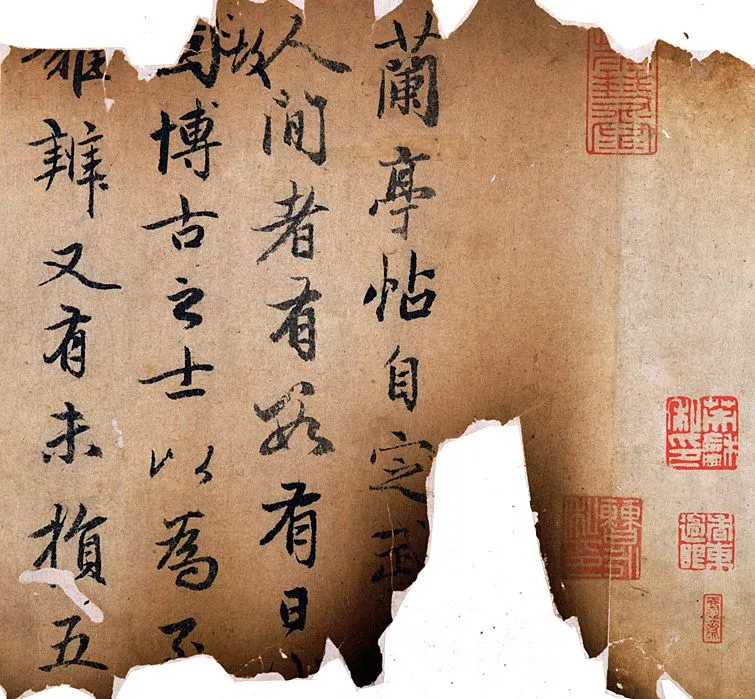 蘭亭帖自定武
人間者有數有日
故博古之士以爲
難辨又有未損五